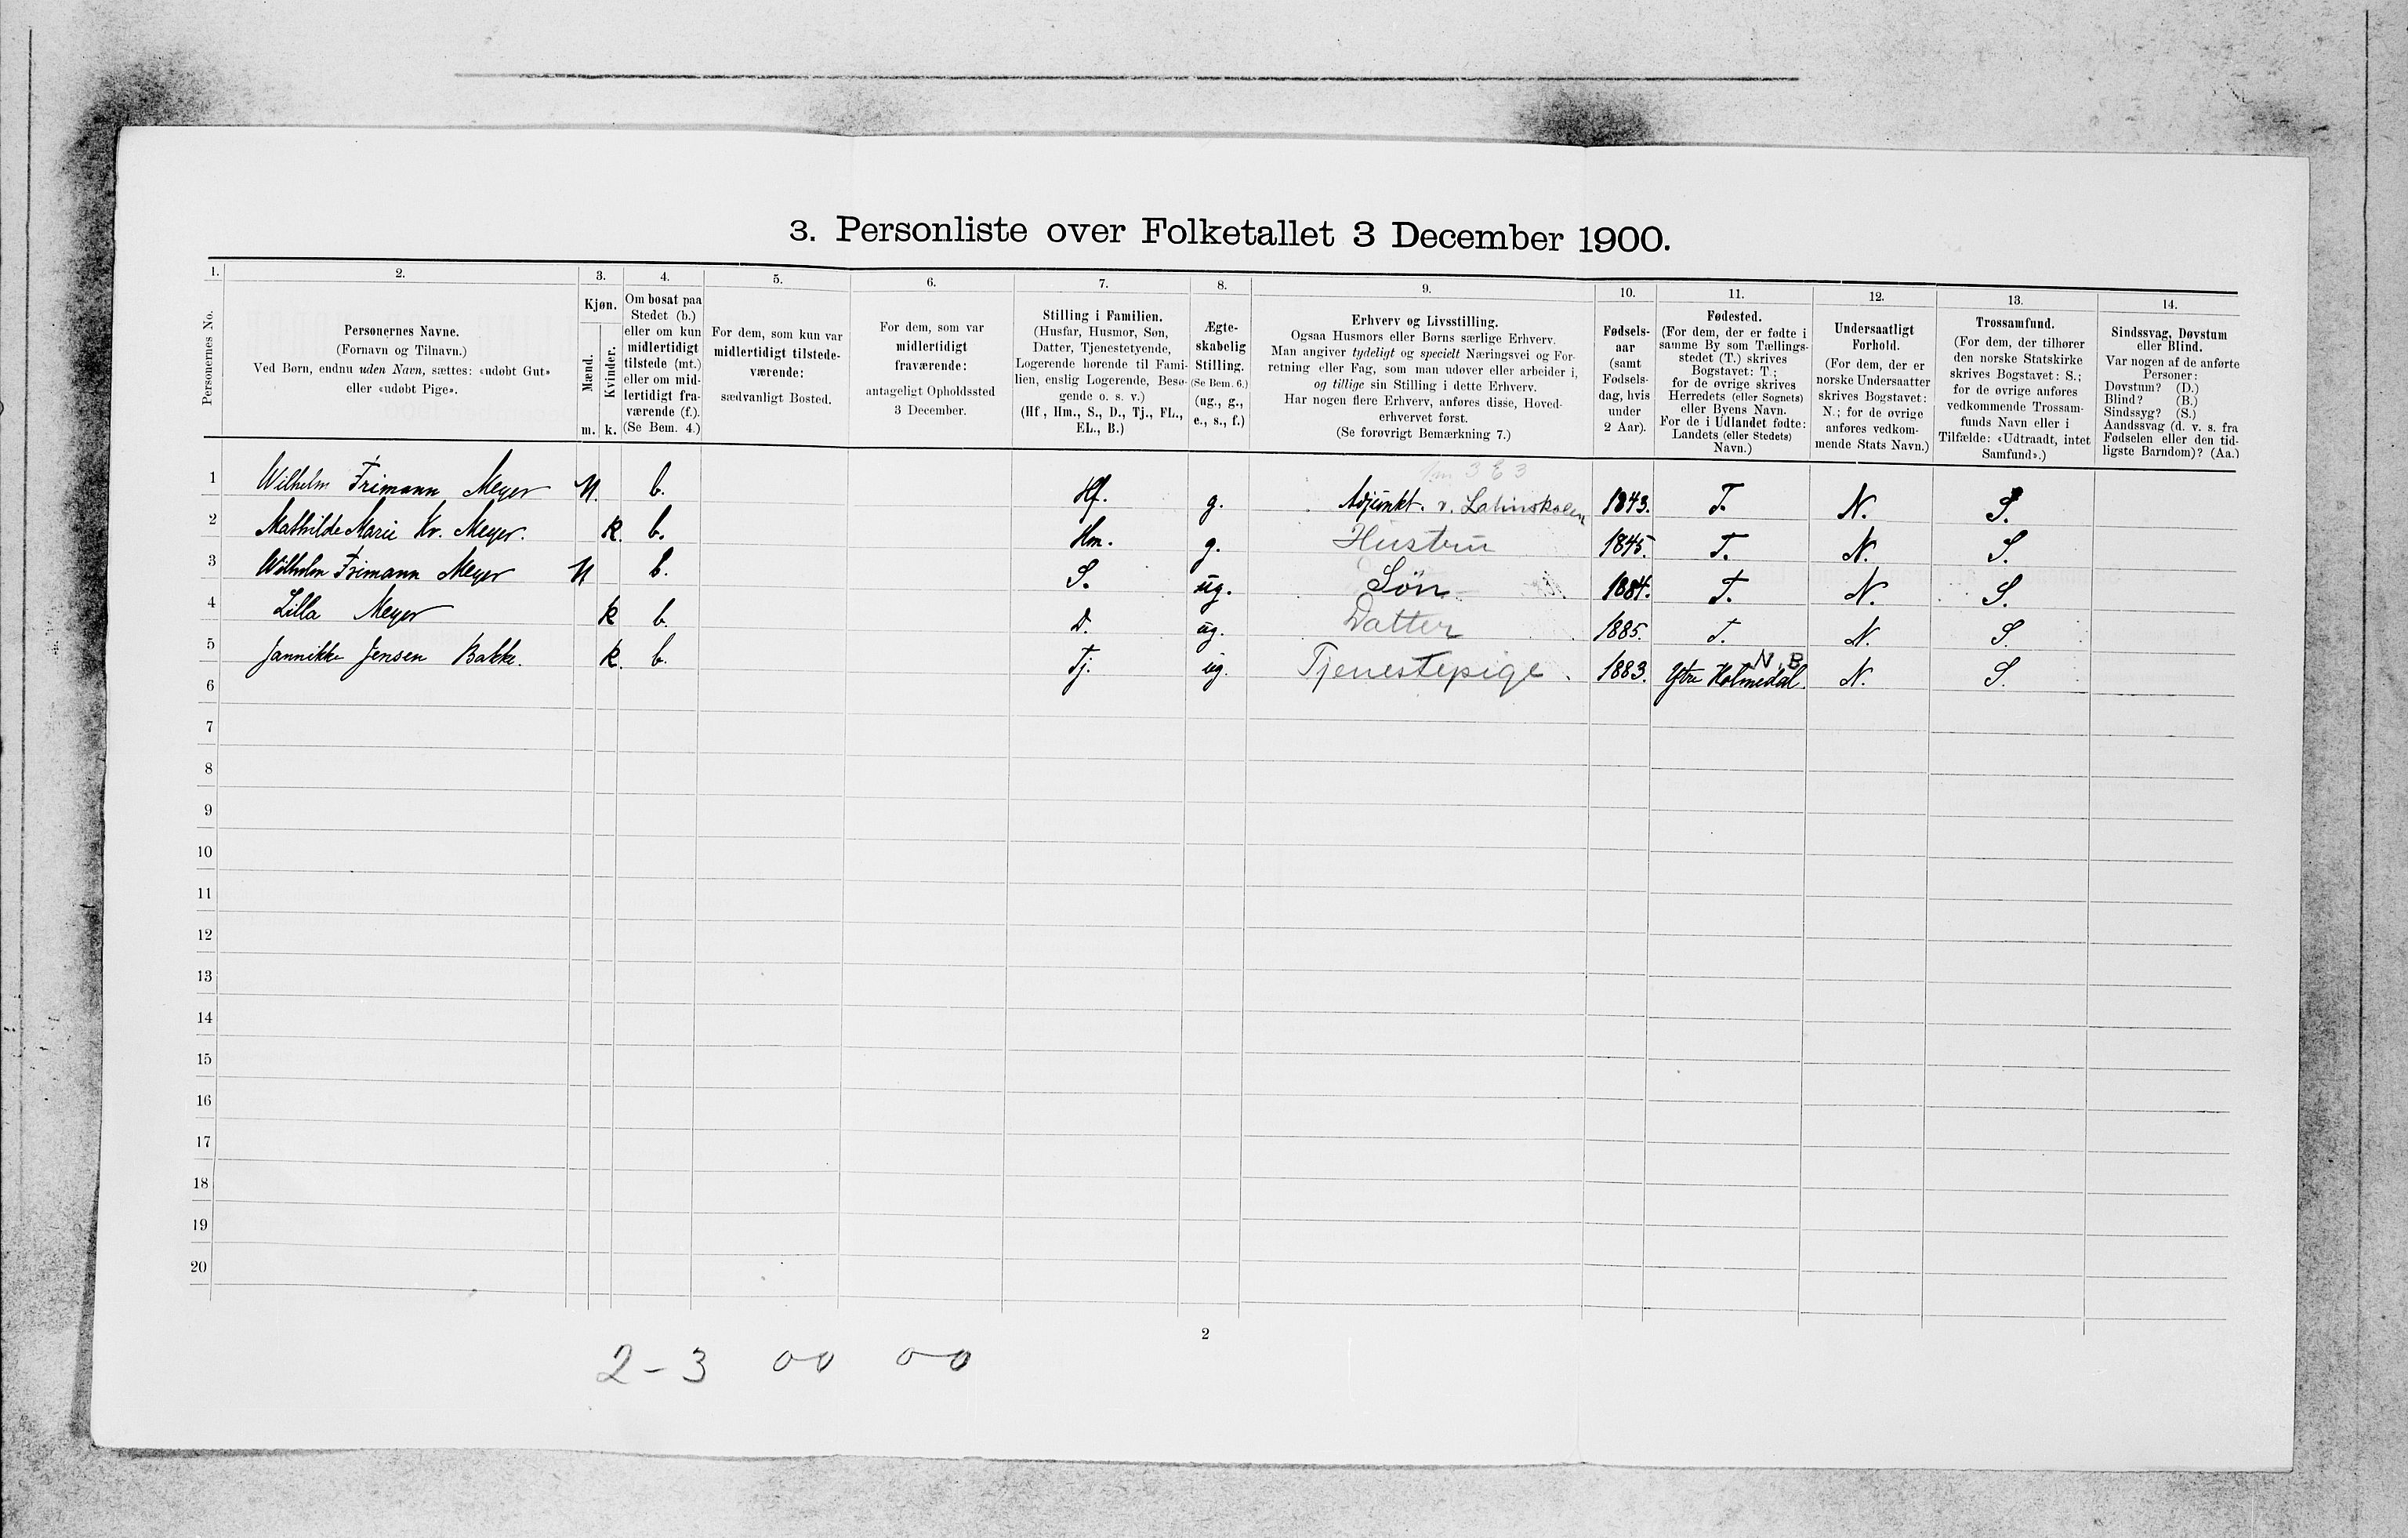 3. Personliste over Folketallet 3 December 1900.
1. 2. 3. 4. 5. 6. 7. 8. 9. 10. 11. 12. 13. 14.
Personernes No.
Personernes Navne.
(Fornavn og Tilnavn.)
Ved Børn, endnu uden Navn, sættes: «udøbt Gut»
eller «udøbt Pige».
Kjøn.
Mænd.
Kvinder.
m. k.
Om bosat paa
Stedet (b.)
eller om kun
midlertidigt
tilstede (mt.)
eller om mid-
lertidigt fra-
værende (f.).
(Se Bem. 4.)
For dem, som kun var
midlertidigt tilstede-
værende:
sædvanligt Bosted.
For dem, som var
midlertidigt
fraværende:
antageligt Opholdssted
3 December.
Stilling i Familien.
(Husfar, Husmor, Søn,
Datter, Tjenestetyende,
Logerende hørende til Fami-
lien, enslig Logerende, Besø-
gende o. s. v.)
(Hf., Hm., S., D., Tj., FL.,
EL., B.)
Ægte-
skabelig
Stilling.
(Se Bem. 6.)
(ug., g.,
e., s., f.)
Erhverv og Livsstilling.
Ogsaa Husmors eller Børns særlige Erhverv.
Man angiver tydeligt og specielt Næringsvei og For-
retning eller Fag, som man udøver eller arbeider i,
og tillige sin Stilling i dette Erhverv.
Har nogen flere Erhverv, anføres disse, Hoved-
erhvervet først.
(Se forøvrigt Bemærkning 7.)
Fødsels-
aar
(samt
Fødsels-
dag, hvis
under
2 Aar).
Fødested.
(For dem, der er fødte i
samme By som Tællings-
stedet (T.) skrives
Bogstavet: T.;
for de øvrige skrives
Herredets (eller Sognets)
eller Byens Navn.
For de i Udlandet fødte:
Landets (eller Stedets)
Navn.)
Undersaatligt
Forhold.
(For dem, der er
norske Undersaatter
skrives Bogstavet:
N.; for de øvrige
anføres vedkom-
mende Stats Navn.)
Trossamfund.
(For dem, der tilhører
den norske Statskirke
skrives Bogstavet: S.;
for de øvrige anføres
vedkommende Trossam-
funds Navn eller i
Tilfælde: «Udtraadt, intet
Samfund».)
Sindssvag, Døvstum
eller Blind.
Var nogen af de anførte
Personer:
Døvstum? (D.)
Blind? (B.)
Sindssyg? (S.)
Aandssvag (d. v. s. fra
Fødselen eller den tid-
ligste Barndom)? (Aa.)
3 E 3
1 Wilhelm Frimann Meyer M. b. Hf. g. Adjunkt. v. Latinskolen 1843. T. N. S.
2 Mathilde Marie Kr. Meyer. k. b. Hm. g. Hustru 1845. T. N. S.
3 Wilhelm Frimann Meyer M b. S. ug. Søn 1884. T. N. S.
4 Lilla Meyer k b. D. ug. Datter 1885. T. N. S.
5 Jannikke Jensen Bakke. k. b. Tj. ug. Tjenestepige. 1883. Ytre Holmedal. N.B N. S.
6
7
8
9
10
11
12
13
14
15
16
17
18
19
20
2
2-3 00 00